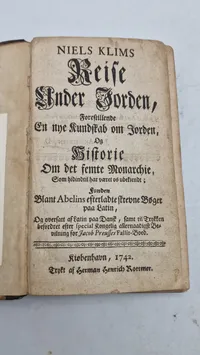 NIELS KLIMS
Reise
Under Jorden,
Forestillende
En nye Kundskab om Jorden,
Og
Historie
Om det femte Monarchie,
Som hidindtil har været os ubekiendt;
Funden
Blant Abelins efterladte skrevne Bøger
paa Latin,
Og oversat af Latin paa Dansk, samt til Trykken
befordret efter special Kongelig allernaadigst Be-
villning for Jacob Preussis Fallit-Boed.
Kiøbenhavn, 1742.
Trykt af Herman Henrich Rotmer.